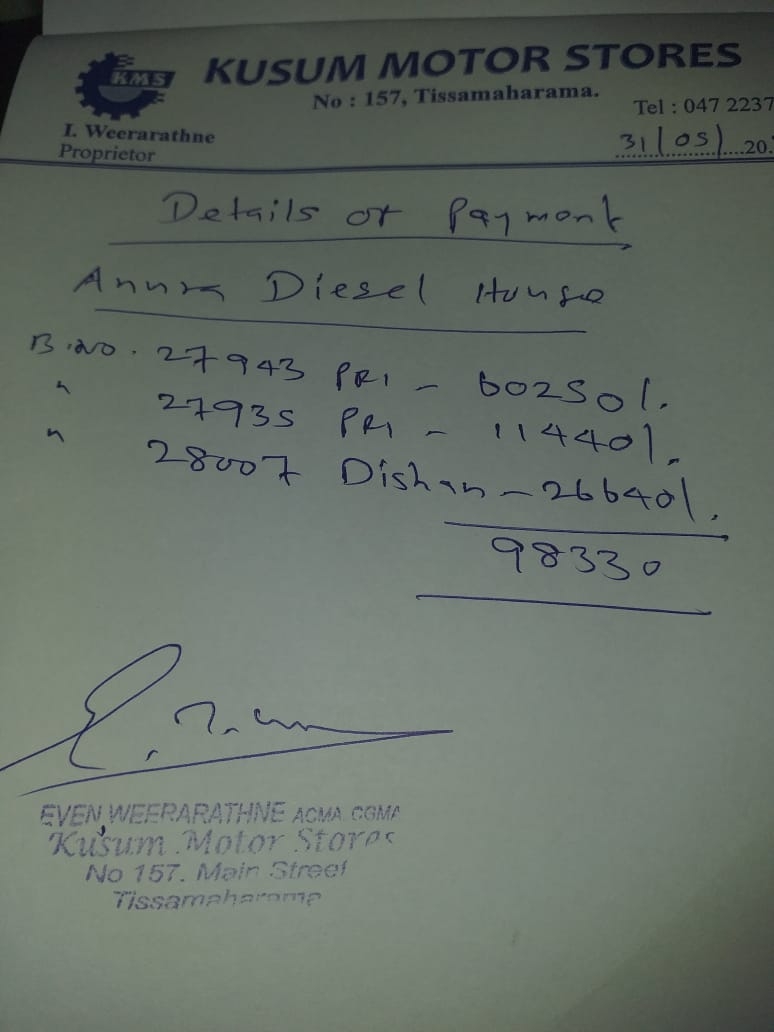 KMS
KUSUM MOTOR STORES
No : 157, Tissamaharama.
Tel : 047 2237
I. Weerarathne
Proprietor
31/05/ 20
Details of Payment
Anura Diesel House
B.NO. 27943 PRI - 60250/.
" 27935 PRI - 11440/.
" 28007 Dishan - 26640/.
98330
EVEN WEERARATHNE ACMA CGMA
Kusum Motor Stores
No 157. Main Street
Tissamaharama